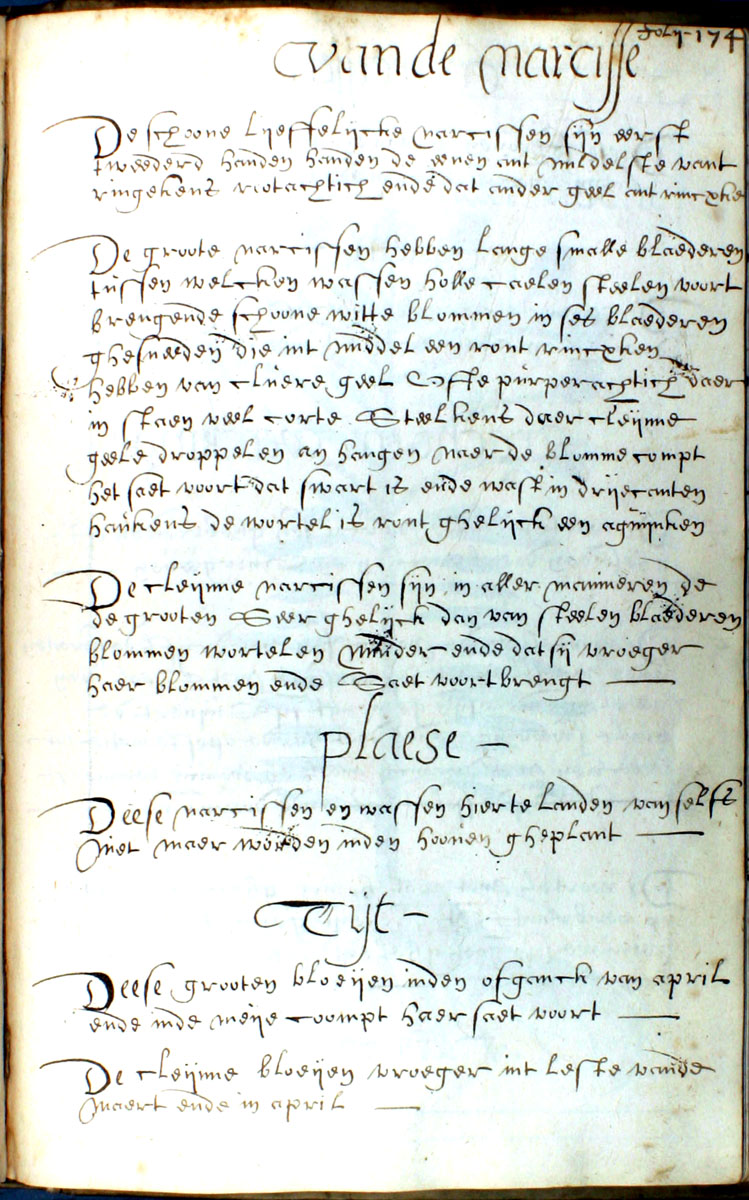 foly · 174
van de narcisse
De schoone lijeffelijcke narcissen sijn eerst
tweederd handen handen de eenen int middelste vant
ringekens rootachtich ende dat ander geel int rincxke
De groote narcissen hebben lange smalle blaederen
tussen welcken wassen holle caelen steelen voort
brengende schoone witte blommen in ses blaederen
ghesneeden die int middel een ront rincxken
hebben van cluere geel Ofte purperachtich daer
in staen veel corte Steelkens daer cleijnne
geele droppelen an hangen naer de blomme compt
het saet voort dat swart is ende wast in drijecanten
haukens de wortel is ront ghelijck een aguijnken
De cleijnne narcissen sijn in aller manneren de
de grooten Seer ghelijck dan van steelen blaederen
blommen wortelen minder ende dat sij vroeger
haer blommen ende Saet voort brengt —
plaese –
Deese narcissen en wassen hier te landen van selfs
niet maer worden inden hoouen gheplant —
Tijt –
Deese grooten bloeijen inden ofganck van april
ende inde meije coompt haer saet voort —
De cleijnne bloeijen vroeger int leste vande
maert ende in april —